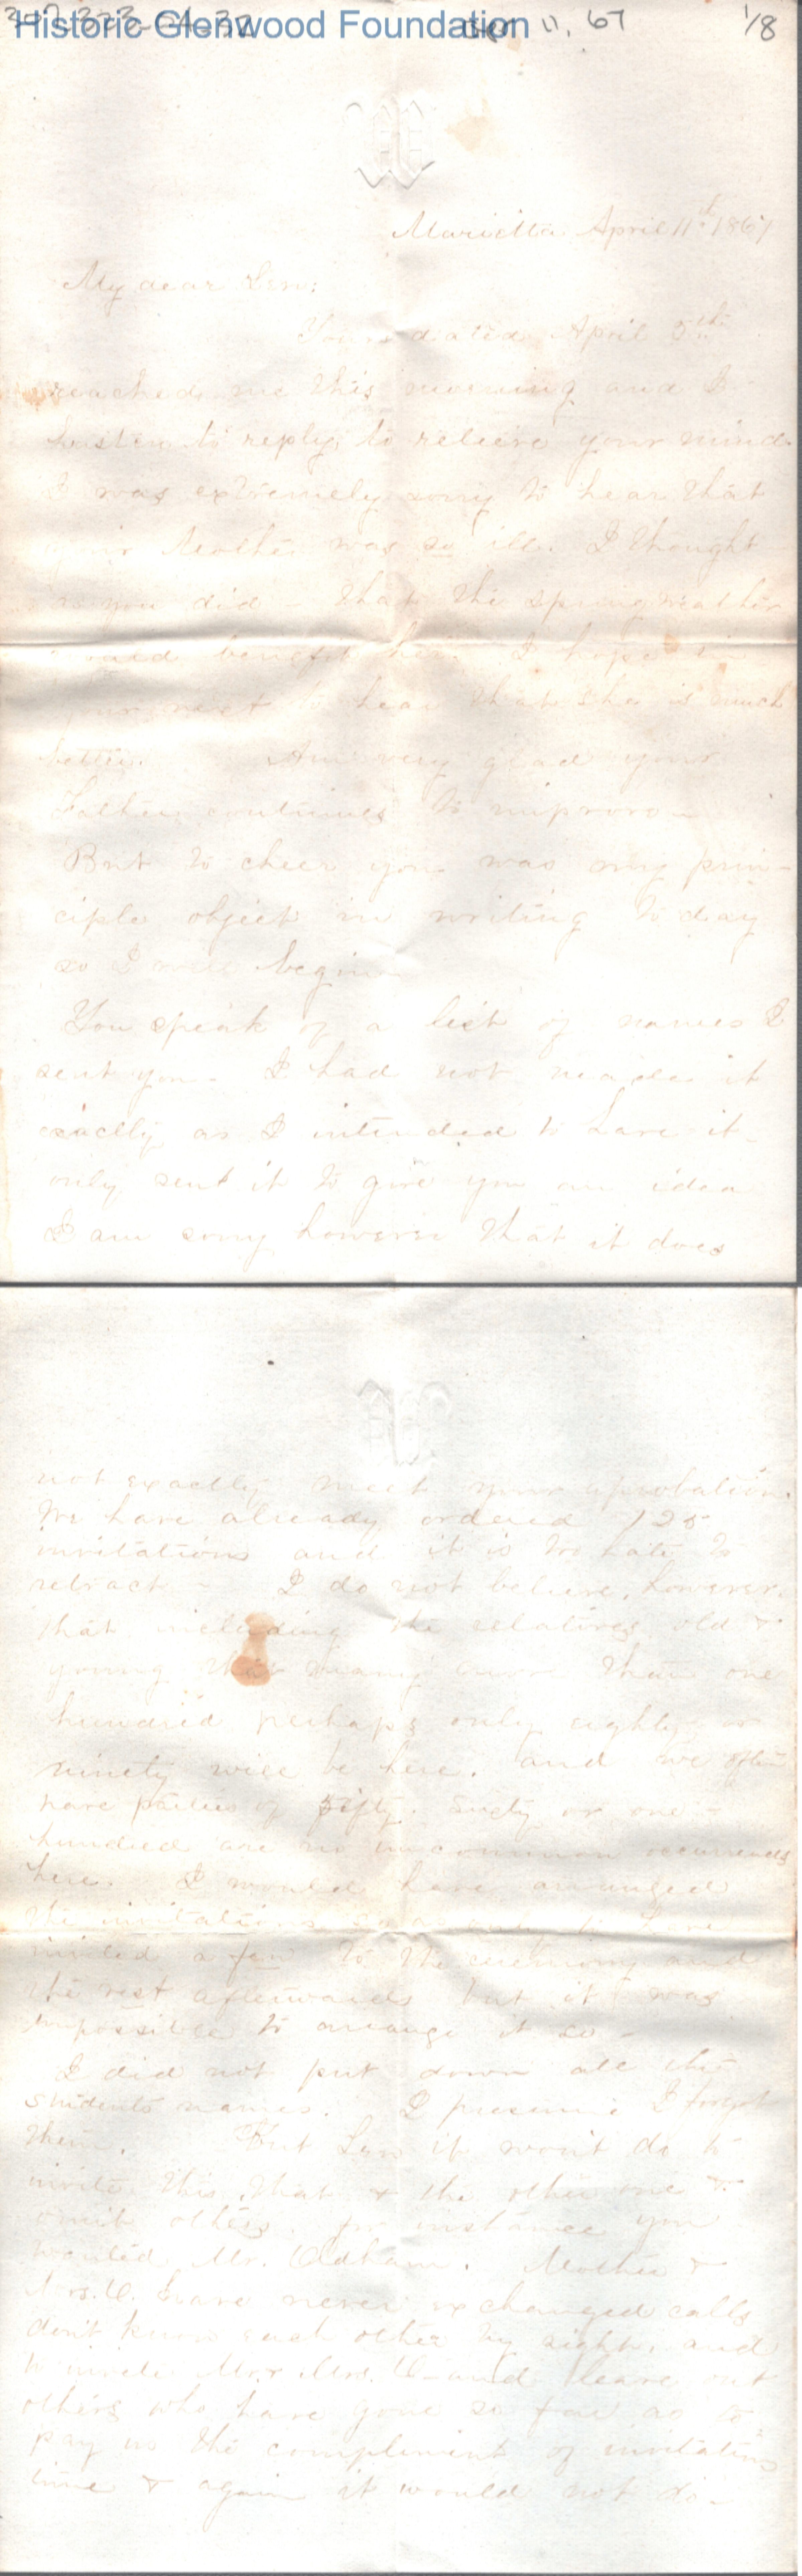 Historic Glenwood Foundation
11, 67
1/8
W
Marietta April 11th 1867
My dear Len:
Yours dated April 5th
reached me this morning and I
hasten to reply, to relieve your mind.
I was extremely sorry to hear that
your Mother was so ill. I thought
as you did - that the spring weather
would benefit her. I hope in
your next to hear that she is much
better. Am very glad your
Father continues to improve -
But to cheer you was my prin-
ciple object in writing to day
so I will begin
You speak of a list of names I
sent you - I had not made it
exactly as I intended to have it -
only sent it to give you an idea
I am sorry however that it does
W
not exactly meet your aprobation.
We have already ordered 125
invitations and it is too late to
retract - I do not believe, however,
that including the relatives, old &
young that many over than one
hundred perhaps only eighty or
ninety will be here. and we often
have parties of fifty. Sixty or one-
hundred are no uncommon occurrences
here. I would have arranged
the invitations so as only to have
invited a few to the ceremony and
the rest afterwards but it was
impossible to arrange it so -
I did not put down all the
students names. I presume I forgot
them. But Len it wont do to
invite this, that & the other one &
omit others, for instance you
wanted Mr. Oldham. Mother &
Mrs. O. have never exchanged calls
don't know each other by sight, and
to invite Mr. & Mrs. O - and leave out
others who have gone so far as to
pay us the compliment of invitations
time & again it would not do -